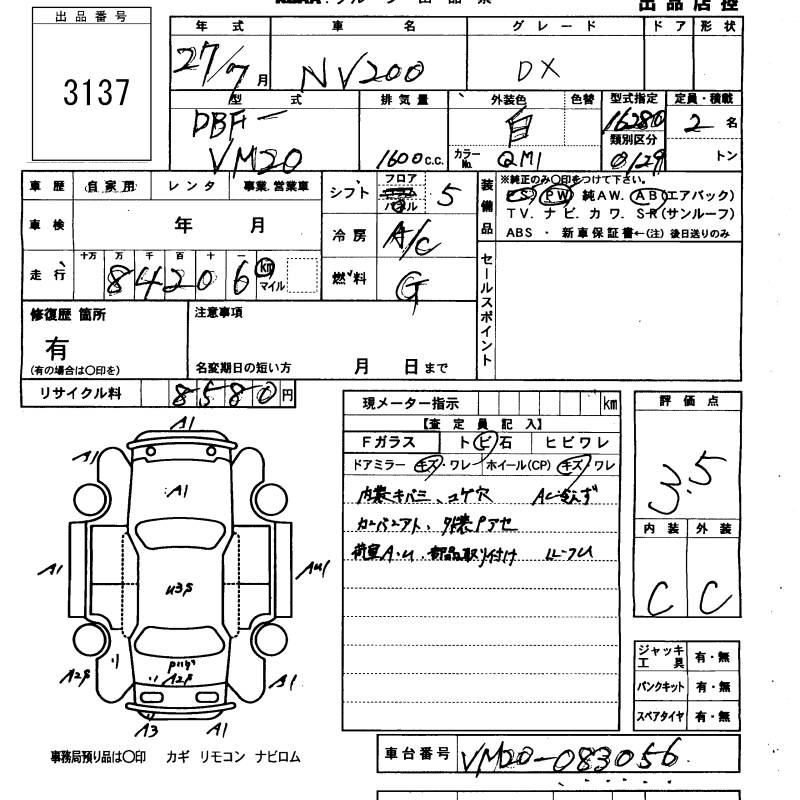 出品店控
出品番号
3137
年式 車名 グレード ドア 形状
27/7月 NV200 DX
型式 排気量 外装色 色替 型式指定 定員・積載
DBF-VM20 1600c.c. 白 16280 2名
カラーNo. QM1 類別区分 0129 トン
車歴 自家用 レンタ 事業、営業車 シフト フロア パネル 5
装備品 ※純正のみ〇印をつけて下さい。
PS PW 純AW. AB(エアバック)
TV. ナビ. カワ. SR(サンルーフ)
ABS ・ 新車保証書←(注) 後日送りのみ
車検 年 月 冷房 A/C
走行 十万 万 千 百 十 一
84206 km マイル 燃料 G
セールスポイント
修復歴 箇所 注意事項
有
(有の場合は〇印を) 名変期日の短い方 月 日まで
リサイクル料 8580円
現メーター指示 km
【査定員記入】
Fガラス トビ石 ヒビワレ
ドアミラー キズ・ワレ ホイール(CP) キズ・ワレ
内装キバミ、コゲ穴
評価点
3.5
内装 外装
C C
A1
A1 A1
A1
A1 U3S
A2S A1
A3 A1
ジャッキ工具 有・無
パンクキット 有・無
スペアタイヤ 有・無
事務局預り品は〇印 カギ リモコン ナビロム
車台番号 VM20-083056